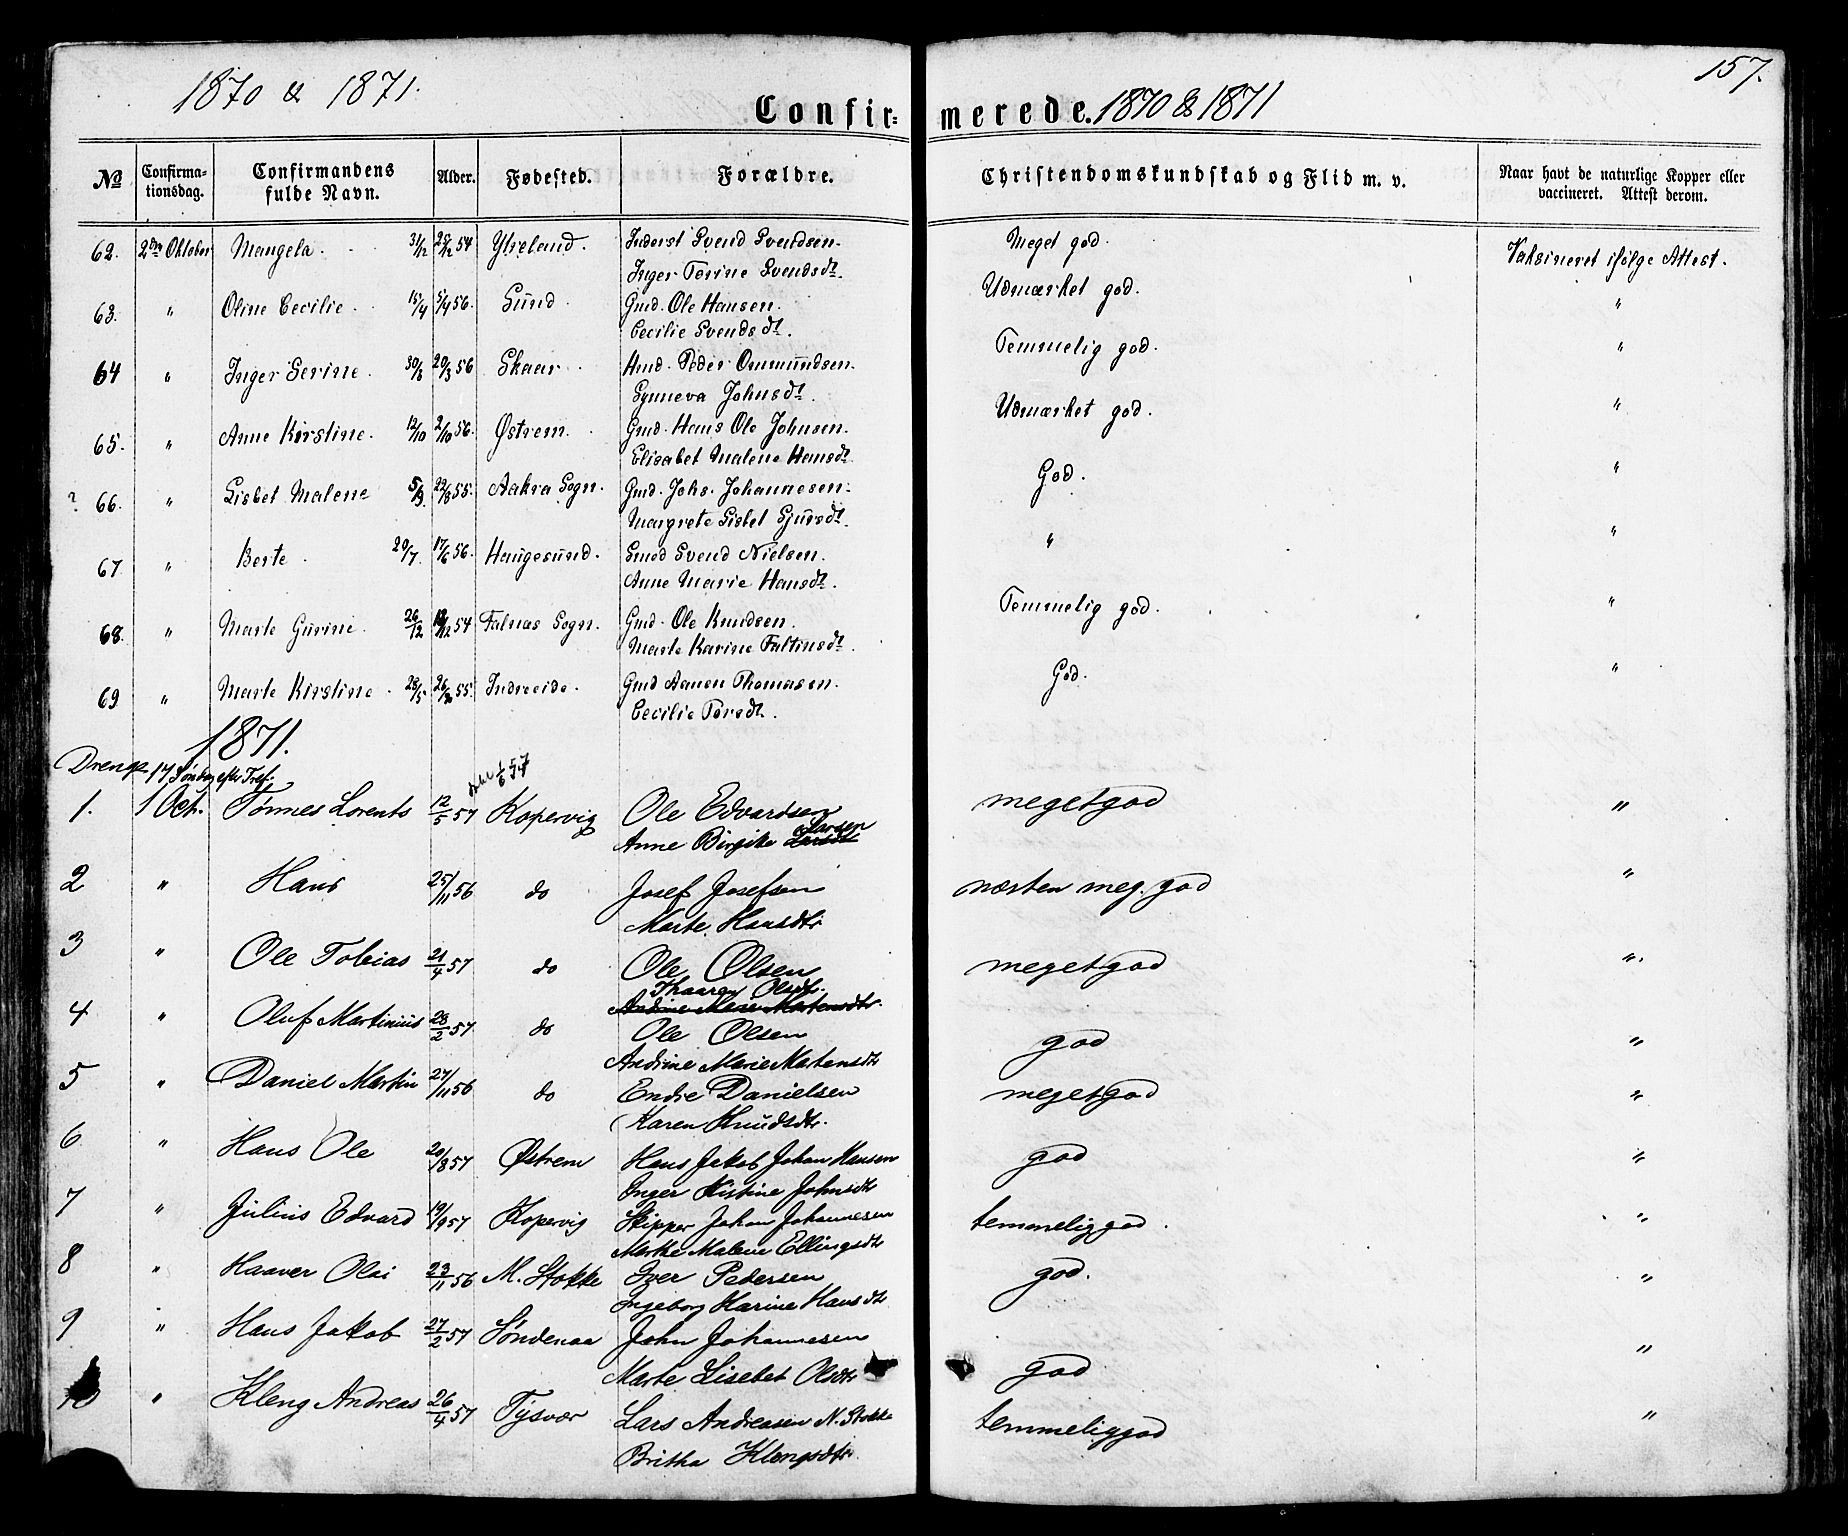 157.
1870 & 1871.
Confir= merede. 1870 & 1871
No Confirma-tionsdag. Confirmandens fulde Navn. Alder. Fødested. Forældre. Christendomskundskab og Flid m. v. Naar havt de naturlige Kopper eller vaccineret. Attest derom.
62. 2den Oktober Mangela. 31/12 54 Ytreland. Inderst Svend Svendsen. Meget god. Vaksineret ifølge Attest.
Inger Torine Svendsdt.
63. " Oline Cecilie. 15/4 5/4 56. Sund. Gmd. Ole Hansen. Udmærket god. "
Cecilie Svendsdt.
64 " Inger Serine. 20/3 56 Skaar. Hmd. Peder Ommundsen. Temmelig god. "
Synneva Johnsdt.
65. " Anne Kirstine. 12/10 2/10 56. Østrem. Gmd. Hans Ole Johnsen. Udmærket god. "
Elisabet Malene Hansdt.
? 66. " Lisbet Malene 5/9. 22/8 55. Aakra Sogn. Gmd. Johs. Johannesen. God. "
Margrete Lisbet Sjursdt.
67. " Berte. 20/7. 17/6 56. Haugesund. Smed Svend Nielsen. " "
Anne Marie Hansdt.
68. " Marte Gurine. 26/12 54 Falnæs Sogn. Gmd. Ole Knudsen. Temmelig god. "
Marte Karine Faltinsdt.
69 " Marte Kirstine. 28/5. 55. Indreeide. Gmd Aanen Thomasen. God. "
Cecilie Torsdt.
1871.
Drenge 17 Søndag efter Tref.
1. 1 Oct. Tønnes Lorents 12/5 57 Kopervig Ole Edvardsen meget god "
Anne Birgite Larsdt Larsen
2 " Hans 25/11 56 do Josef Josefsen næsten meg. god "
Marte Hansdtr
3 " Ole Tobias 21/4 57 do Ole Olsen meget god "
Thaaren Olsdtr.
Andrine Marie Martensdtr.
4 " Oluf Martinius 28/2 57 do Ole Olsen god "
Andrine Marie Martensdtr
5 " Daniel Martin 27/11 56 do Endre Danielsen meget god "
Karen Knudsdtr.
6 " Hans Ole 20/8 57 Østrem Hans Jakob Johan Hansen god "
Inger Kistine Johnsdtr
7 " Julius Edvard 19/9 57 Kopervig Skipper Johan Johannesen temmelig god. "
Marthe Malene Ellingsdtr
8 " Haaver Olai 23/11 56 M. Stokke Iver Pedersen god. "
Ingeborg Karine Hansdtr
9 " Hans Jakob 27/2 57 Søndenaa John Johannesen god "
Marte Lisebet Olsdtr
10 " Kleng Andreas 26/4 57 Tysvær Lars Andreasen N. Stokke temmelig god "
Britha Klengsdtr.